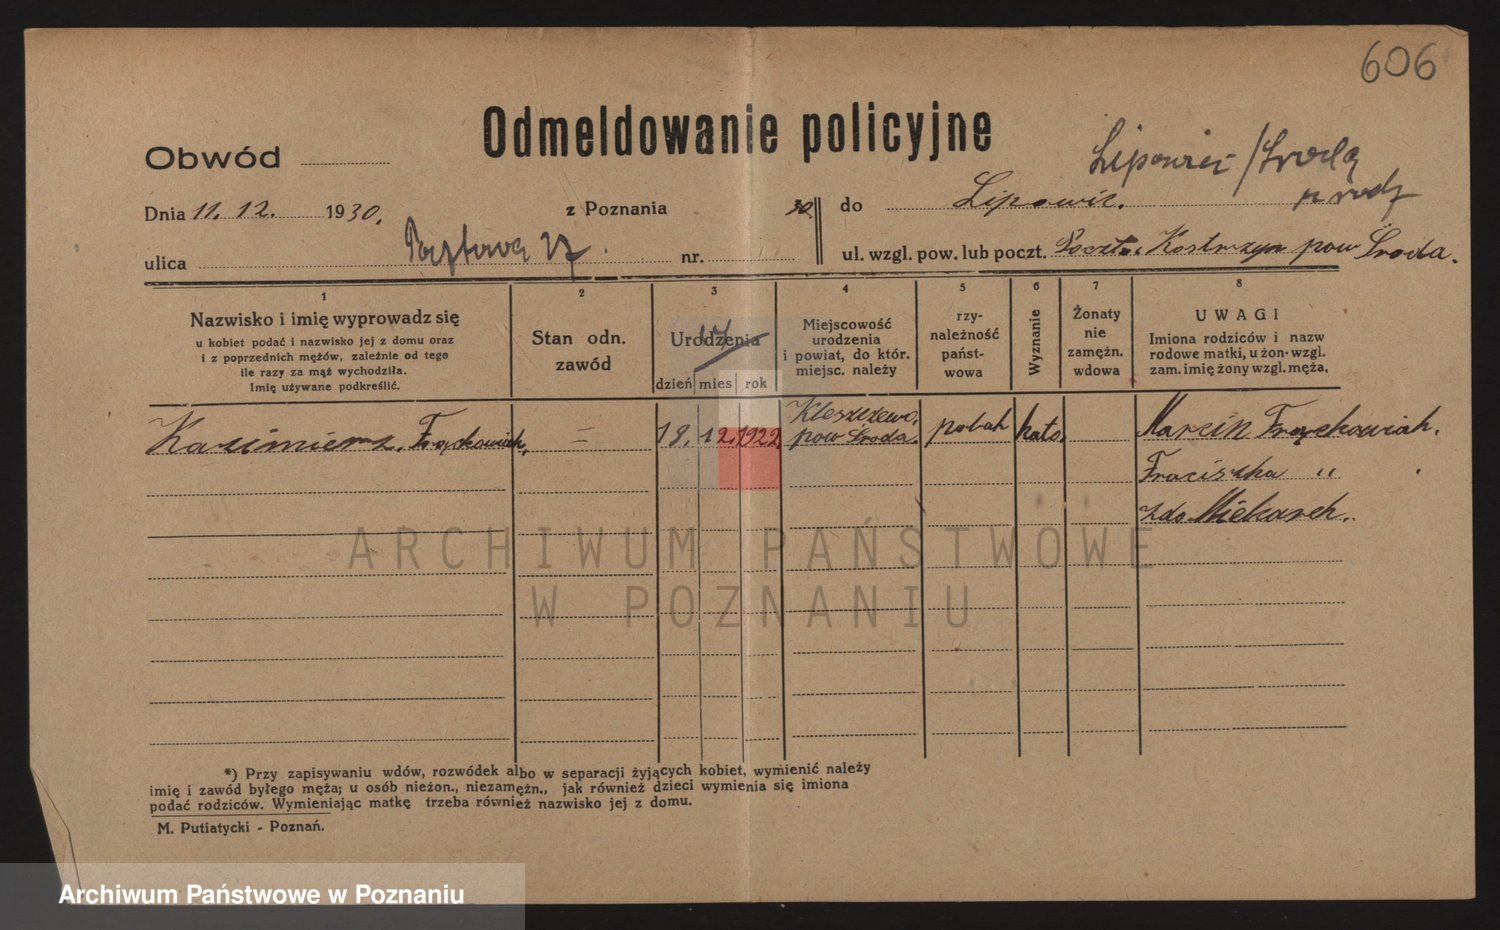 606
Odmeldowanie policyjne
Obwód
Lipowiec / Środą
Dnia 11. 12. 1930. z Poznania 30. do Lipowic.
ulica Pocztowa 27 nr. ul. wzgl. pow. lub poczt. Poczta Kostrzyn pow Środa.
1 2 3 4 5 6 7 8
Nazwisko i imię wyprowadz się
u kobiet podać i nazwisko jej z domu oraz
i z poprzednich mężów, zależnie od tego
ile razy za mąż wychodziła.
Imię używane podkreślić.
Stan odn.
zawód
Urodzenia
dzień mies rok
Miejscowość
urodzenia
i powiat, do któr.
miejsc. należy
rzy-
należność
państ-
wowa
Wyznanie
Żonaty
nie
zamężn.
wdowa
UWAGI
Imiona rodziców i nazw
rodowe matki, u żon-wzgl.
zam. imię żony wzgl. męża.
Kazimierz Frąckowiak, = 18. 12. 1922. Kleszczewo, pow Środa. polak kato. Marcin Frąckowiak.
Fraciszka "
zdo Miekarek.
ARCHIWUM PAŃSTWOWE
W POZNANIU
*) Przy zapisywaniu wdów, rozwódek albo w separacji żyjących kobiet, wymienić należy
imię i zawód byłego męża; u osób nieżon., niezamężn., jak również dzieci wymienia się imiona
podać rodziców. Wymieniając matkę trzeba również nazwisko jej z domu.
M. Putiatycki - Poznań.
Archiwum Państwowe w Poznaniu